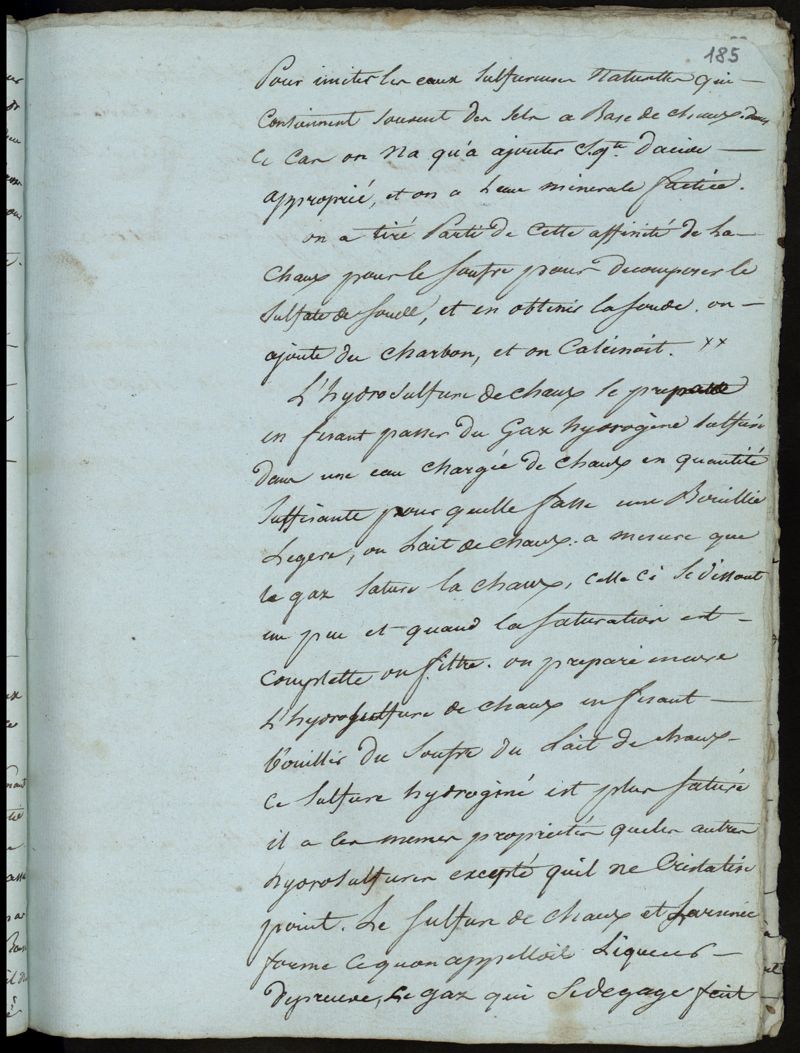 185
Pour imiter les eaux Sulfureuses Naturelles qui
Contiennent souvent des Sels a Base de chaux. dans
Ce Cas on Na qu'à ajouter S. qte. D'acide
approprié, et on a L'eau minerale factice.
on a tiré Parti De Cette affinité de La
chaux pour le Soufre pour Decomposer le
Sulfate de Soude, et en obtenir la Soude. on
ajoute du charbon, et on Calcinoit. xx
L'hydrosulfure de chaux se prepare
en fesant passer du Gaz hydrogène Sulfuré
dans une eau chargée de chaux en quantité
Suffisante pour quelle fasse une Bouillie
Legere, ou Lait de chaux. a mesure que
le gaz Sature la chaux, celle ci Se dissout
un peu et quand la Saturation est
complette on filtre. on prepare encore
L'hydrosulfure de chaux en fesant
bouillir Du Soufre du Lait de chaux
Ce Sulfure hydrogéné est plus Saturé
il a les memes propriétés que les autres
hydrosulfures excepté quil ne Cristalise
point. Le Sulfure de chaux et
forme Ce quon appelloit Liqueur
D'epreuve, Le gaz qui Se degage